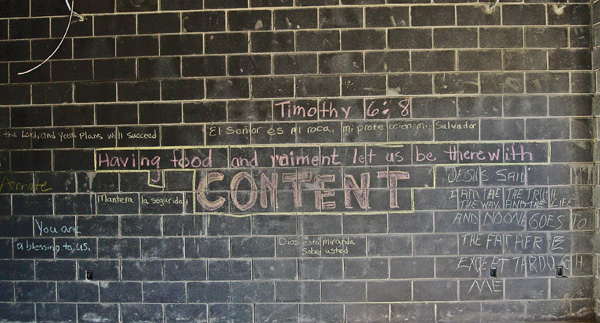 Timothy 6:8
the Lord, and your plans will succeed
El Señor es mi roca, mi protección, mi Salvador
Having food and raiment let us be therewith
CONTENT
Mantera la seguridad
You are
a blessing to us.
Dios esta miranda
Sobel usted
JESUS SAID
I AM THE THE TRUTH
THE WAY, AND THE LIFE
AND NO ONE GOES TO
THE FATHER
EXCEPT
ME